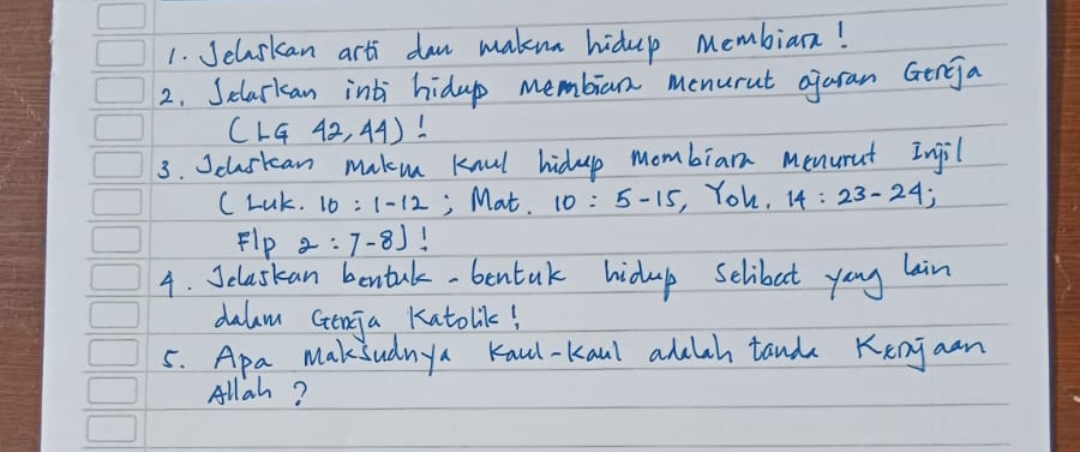 1. Jelaskan arti dan makna hidup Membiara !
2. Jelaskan inti hidup Membiara Menurut ajaran Gereja
(LG 42,44) !
3. Jelaskan Makna Kaul hidup Membiara Menurut Injil
(Luk. 10 : 1-12 ; Mat. 10 : 5-15, Yoh. 14 : 23-24;
Flp 2 : 7-8) !
4. Jelaskan bentuk-bentuk hidup Selibat yang lain
dalam Gereja Katolik !
5. Apa Maksudnya Kaul-Kaul adalah tanda Kerajaan
Allah ?